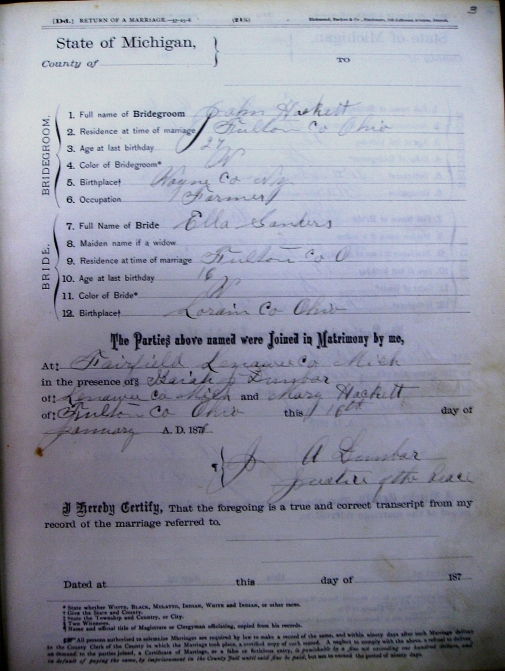 3
[Dd.] RETURN OF A MARRIAGE.
State of Michigan,
County of
TO
BRIDEGROOM.
1. Full name of Bridegroom John Hackett
2. Residence at time of marriage Fulton Co Ohio
3. Age at last birthday 27
4. Color of Bridegroom* W
5. Birthplace† Wayne Co Ny
6. Occupation Farmer
BRIDE.
7. Full Name of Bride Ella Sanders
8. Maiden name if a widow
9. Residence at time of marriage Fulton Co O
10. Age at last birthday 16
11. Color of Bride* W
12. Birthplace† Lorain Co Ohio
The Parties above named were Joined in Matrimony by me,
At‡ Fairfield Lenawee Co Mich
in the presence of§ Isaiah J Dunbar
of‡ Lenawee Co Mich and Mary Hackett
of‡ Fulton Co Ohio this 16th day of
January A. D. 1876
¶ A Dunbar
Justice of the Peace
I Hereby Certify, That the foregoing is a true and correct transcript from my
record of the marriage referred to.
Dated at this day of 187
* State whether WHITE, BLACK, MULATTO, INDIAN, WHITE AND INDIAN, or other races.
† Give the State and County.
‡ State the Township and County, or City.
§ Two Witnesses.
¶ Name and official title of Magistrate or Clergyman officiating, copied from his records.
All persons authorized to solemnize Marriages are required by law to make a record of the same, and within ninety days after such Marriage deliver
to the County Clerk of the County in which the Marriage took place, a certified copy of such record. A neglect to comply with the above, a refusal to deliver
on demand to the parties joined, a Certificate of Marriage, or a false or fictitious entry, is punishable by a fine not exceeding one hundred dollars, and
in default of paying the same, by imprisonment in the County Jail until said fine be paid, but not to exceed the period of ninety days.